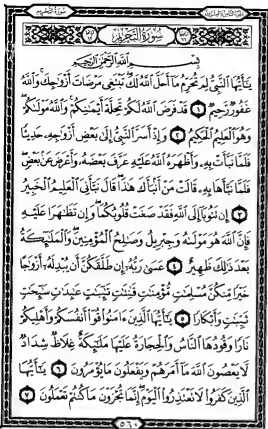 الجزء الثامن والعشرون سورة التحريم
سُورَةُ التَّحْرِيمِ
بِسْمِ ٱللَّهِ ٱلرَّحْمَٰنِ ٱلرَّحِيمِ
يَٰٓأَيُّهَا ٱلنَّبِىُّ لِمَ تُحَرِّمُ مَآ أَحَلَّ ٱللَّهُ لَكَ ۖ تَبْتَغِى مَرْضَاتَ أَزْوَٰجِكَ ۚ وَٱللَّهُ
غَفُورٌ رَّحِيمٌ ١ قَدْ فَرَضَ ٱللَّهُ لَكُمْ تَحِلَّةَ أَيْمَٰنِكُمْ ۚ وَٱللَّهُ مَوْلَىٰكُمْ ۖ
وَهُوَ ٱلْعَلِيمُ ٱلْحَكِيمُ ٢ وَإِذْ أَسَرَّ ٱلنَّبِىُّ إِلَىٰ بَعْضِ أَزْوَٰجِهِۦ حَدِيثًا
فَلَمَّا نَبَّأَتْ بِهِۦ وَأَظْهَرَهُ ٱللَّهُ عَلَيْهِ عَرَّفَ بَعْضَهُۥ وَأَعْرَضَ عَنۢ بَعْضٍ ۖ
فَلَمَّا نَبَّأَهَا بِهِۦ قَالَتْ مَنْ أَنۢبَأَكَ هَٰذَا ۖ قَالَ نَبَّأَنِىَ ٱلْعَلِيمُ ٱلْخَبِيرُ
٣ إِن تَتُوبَآ إِلَى ٱللَّهِ فَقَدْ صَغَتْ قُلُوبُكُمَا ۖ وَإِن تَظَٰهَرَا عَلَيْهِ
فَإِنَّ ٱللَّهَ هُوَ مَوْلَىٰهُ وَجِبْرِيلُ وَصَٰلِحُ ٱلْمُؤْمِنِينَ ۖ وَٱلْمَلَٰٓئِكَةُ
بَعْدَ ذَٰلِكَ ظَهِيرٌ ٤ عَسَىٰ رَبُّهُۥٓ إِن طَلَّقَكُنَّ أَن يُبْدِلَهُۥٓ أَزْوَٰجًا
خَيْرًا مِّنكُنَّ مُسْلِمَٰتٍ مُّؤْمِنَٰتٍ قَٰنِتَٰتٍ تَٰٓئِبَٰتٍ عَٰبِدَٰتٍ سَٰٓئِحَٰتٍ
ثَيِّبَٰتٍ وَأَبْكَارًا ٥ يَٰٓأَيُّهَا ٱلَّذِينَ ءَامَنُوا۟ قُوٓا۟ أَنفُسَكُمْ وَأَهْلِيكُمْ
نَارًا وَقُودُهَا ٱلنَّاسُ وَٱلْحِجَارَةُ عَلَيْهَا مَلَٰٓئِكَةٌ غِلَاظٌ شِدَادٌ
لَّا يَعْصُونَ ٱللَّهَ مَآ أَمَرَهُمْ وَيَفْعَلُونَ مَا يُؤْمَرُونَ ٦ يَٰٓأَيُّهَا
ٱلَّذِينَ كَفَرُوا۟ لَا تَعْتَذِرُوا۟ ٱلْيَوْمَ ۖ إِنَّمَا تُجْزَوْنَ مَا كُنتُمْ تَعْمَلُونَ ٧
٥٦٠